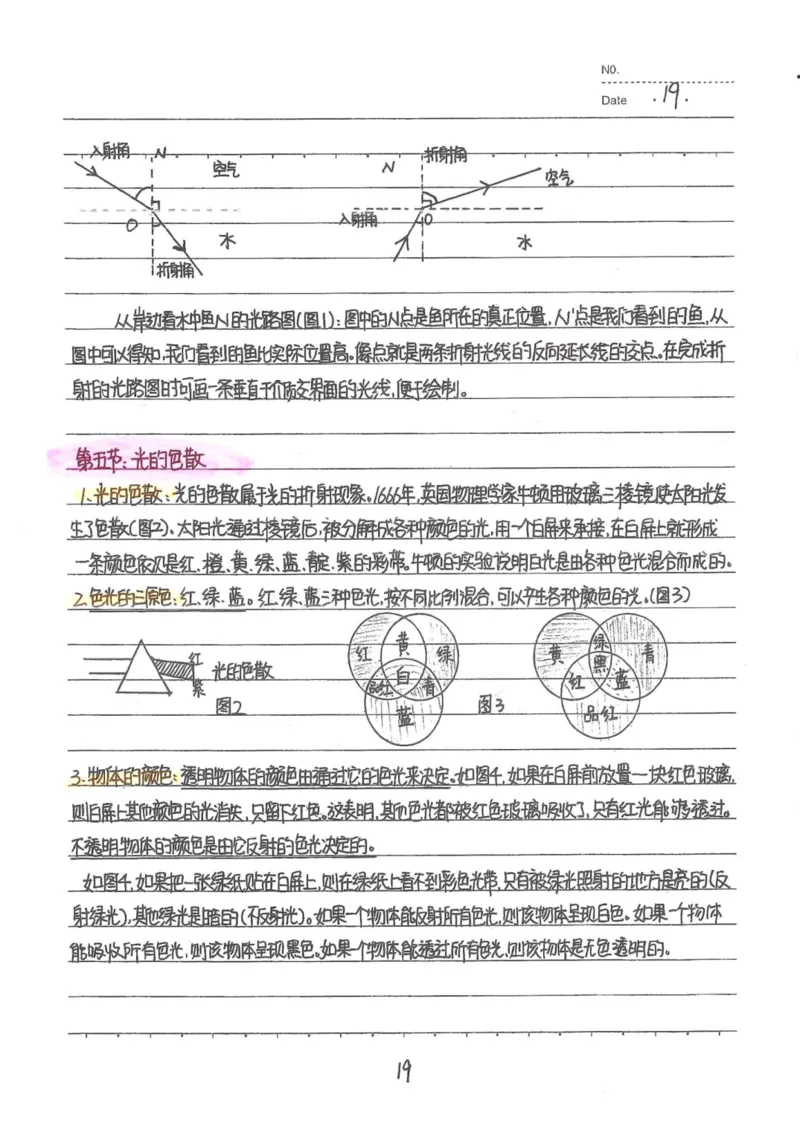 NO.
Date .19.
入射角 N 空气 N 折射角 空气
O 水 入射角 O 水
折射角
从岸边看水中鱼N的光路图(图1):图中的N点是鱼所在的真正位置,N'点是我们看到的鱼,从
图中可以得知,我们看到的鱼比实际位置高。像点就是两条折射光线的反向延长线的交点。在完成折
射的光路图时可画一条垂直于介质交界面的光线,便于绘制。
第五节:光的色散
1.光的色散:光的色散属于光的折射现象。1666年,英国物理学家牛顿用玻璃三棱镜使太阳光发
生了色散(图2)、太阳光通过棱镜后,被分解成各种颜色的光,用一个白屏来承接,在白屏上就形成
一条颜色依次是红、橙、黄、绿、蓝、靛、紫的彩带。牛顿的实验说明白光是由各种色光混合而成的。
2.色光的三原色:红、绿、蓝。红、绿、蓝三种色光,按不同比例混合,可以产生各种颜色的光。(图3)
红 光的色散 紫 图2
红 黄 绿 品红 白 青 蓝
图3
黄 绿 青 黑 红 蓝 品红
3.物体的颜色:透明物体的颜色由通过它的色光来决定。如图4,如果在白屏前放置一块红色玻璃,
则白屏上其他颜色的光消失,只留下红色。这表明,其他色光都被红色玻璃吸收了,只有红光能够透过。
不透明物体的颜色是由它反射的色光决定的。
如图4,如果把一张绿纸贴在白屏上,则在绿纸上看不到彩色光带,只有被绿光照射的地方是亮的(反
射绿光),其他绿光是暗的(不反射光)。如果一个物体能反射所有色光,则该物体呈现白色。如果一个物体
能吸收所有色光,则该物体呈现黑色。如果一个物体能透过所有色光,则该物体是无色透明的。
19